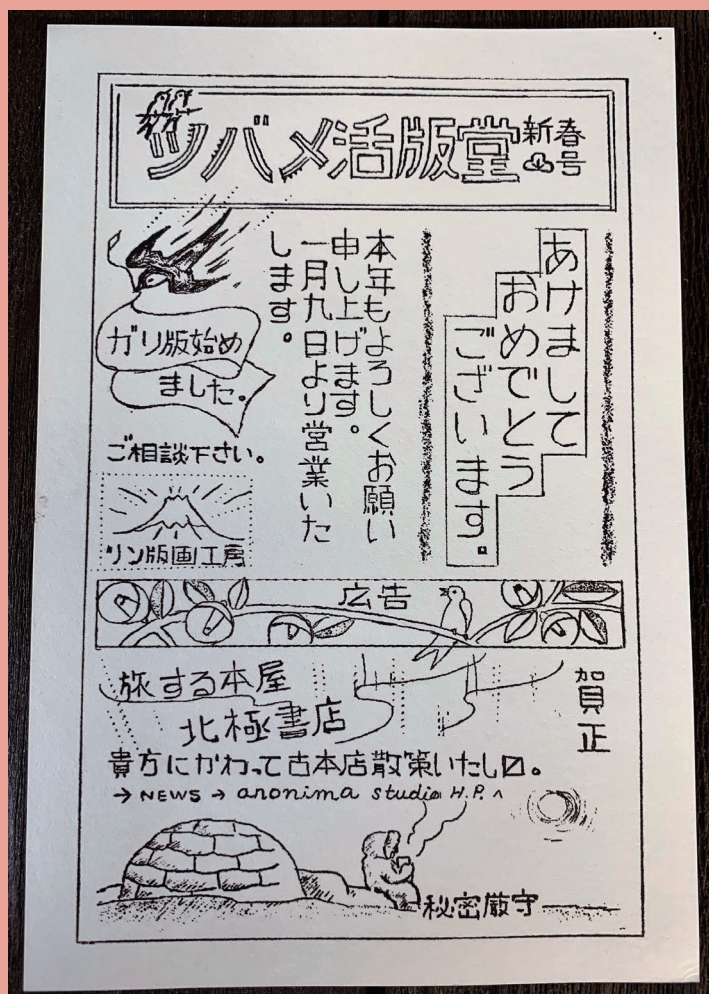 ツバメ活版堂
新春号
あけまして
おめでとう
ございます。
本年もよろしくお願い
申し上げます。
一月九日より営業いた
します。
ガリ版始め
ました。
ご相談下さい。
リン版画工房
広告
賀正
旅する本屋
北極書店
貴方にかわって古本店散策いたし〼。
→ NEWS → anonima studio H.P. ^
秘密厳守